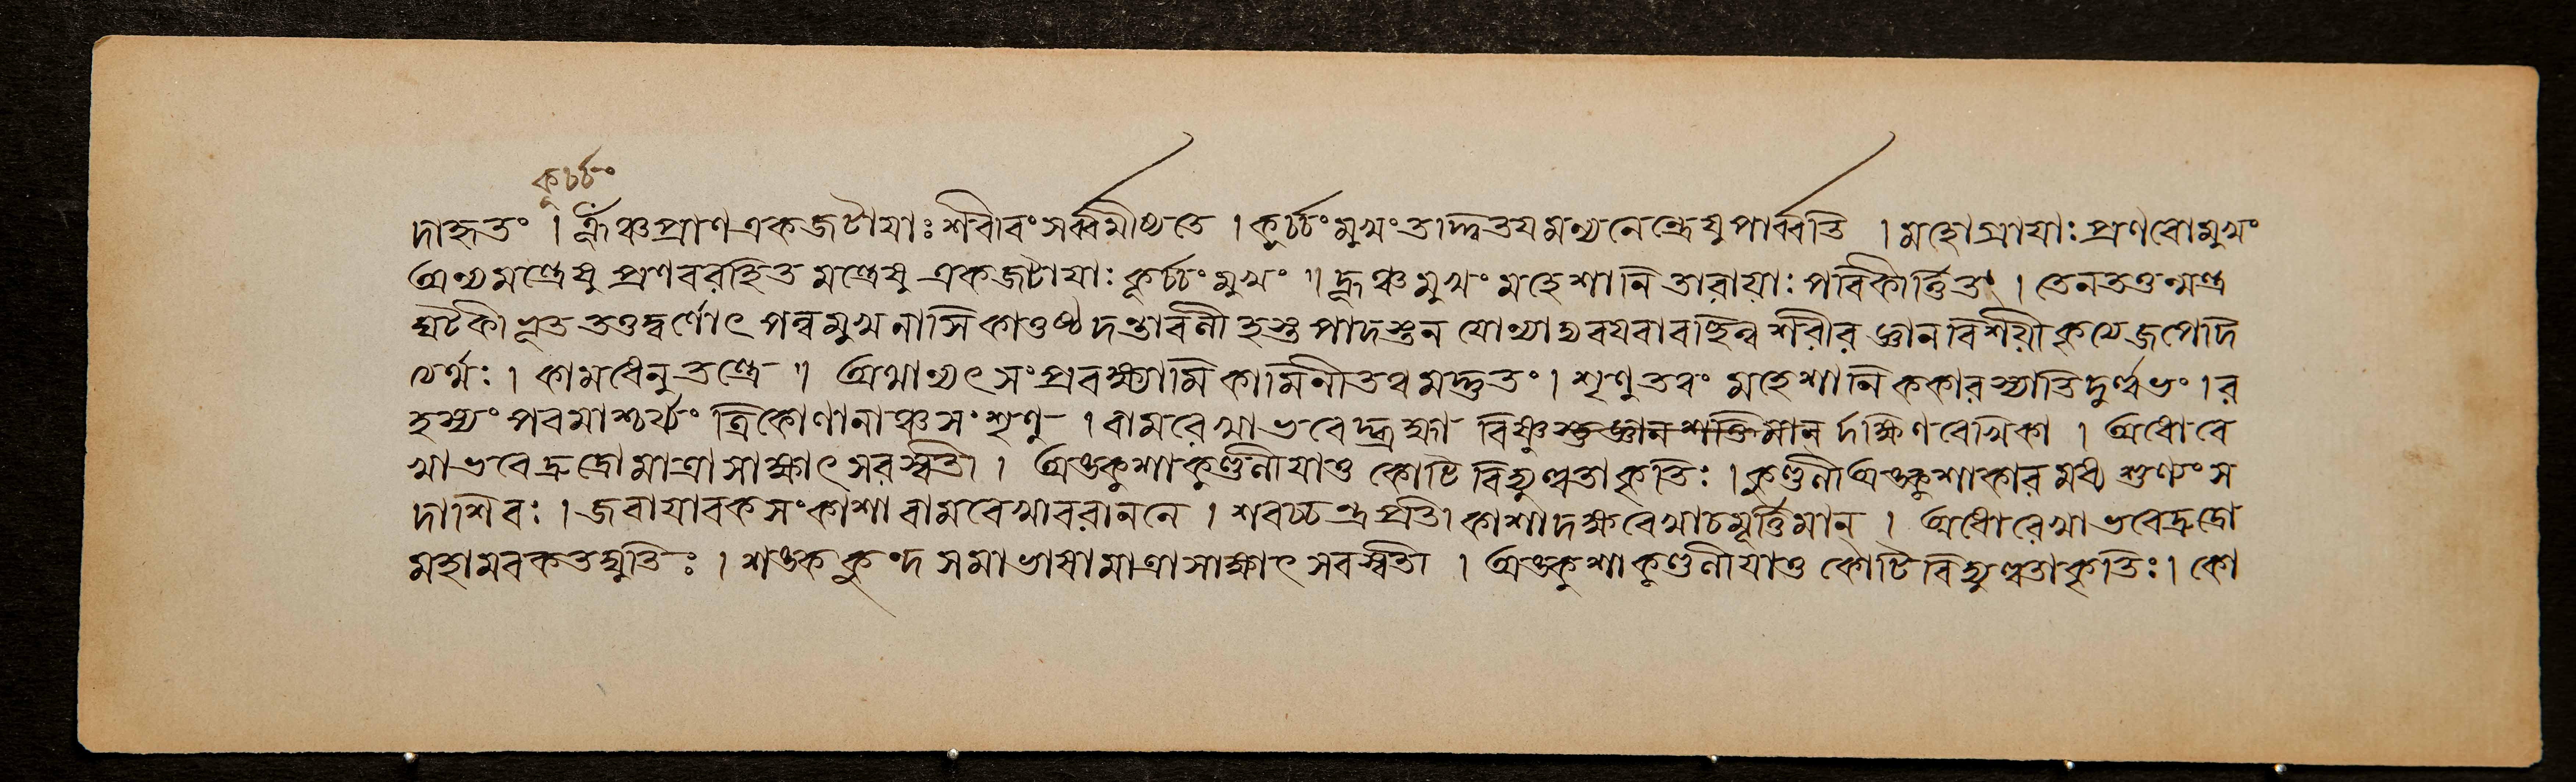 কূর্চ্চং
দাহৃতং । হ্রূঁঞ্চপ্রাণএকজটায়াঃ শরীরং সর্ব্বমীর্য্যতে । কূর্চ্চং মুখং তদ্ব্যতয়মন্থনেন্দ্রেষু পার্ব্বতি । মহোগ্রায়াঃ প্রণবোমুখং
অন্যমন্ত্রেষু প্রণবরহিত মন্ত্রেষু একজটায়াঃ কূর্চ্চং মুখং ॥ হ্রূঞ্চ মুখং মহেশানি তারায়াঃ পরিকীর্ত্তিতং । তেনতত্তন্মন্ত্র
ঘটকীভূত তত্তদ্বর্ণোৎপন্ন মুখনাসিকাওষ্ঠ দন্তাবলী হস্ত পাদস্তন যোন্যাদ্যবয়বাবচ্ছিন্ন শরীর জ্ঞান বিশয়ীকৃত্যে জপেদি
ত্যর্থঃ । কামধেনুতন্ত্রে ॥ অথান্যৎ সংপ্রবক্ষ্যামি কামিনীতত্ত্বমদ্ভুতং । শৃণু তত্ত্বং মহেশানি ককারস্যাতিদুর্ল্লভং । র
হস্যং পরমাশ্চর্য্যং ত্রিকোণানাঞ্চ সংশৃণু । বামরেখা ভবেদ্ব্রহ্মা বিষ্ণু স্তু জ্ঞান শক্তিমান্ দক্ষিণরেখিকা । অধোরে
খা ভবেদ্রুদ্রো মাত্রা সাক্ষাৎ সরস্বতী । অঙ্কুশাকুণ্ডলীযাতু কোটি বিদ্যুল্লতাকৃতিঃ । কুণ্ডলী অঙ্কুশাকার মধ্য শূণ্যং স
দাশিবঃ । জবাযাবকসংকাশা বামরেখাবরাননে । শরচ্চন্দ্রপ্রতীকাশা দক্ষরেখাচমূর্ত্তিমান্ । অধোরেখা ভবেদ্রুদ্রো
মহামরকতদ্যুতিঃ । শঙ্ককুংদ সমাভাসা মাত্রা সাক্ষাৎ সরস্বতী । অঙ্কুশাকুণ্ডলীযাতু কোটি বিদ্যুল্লতাকৃতিঃ । কো